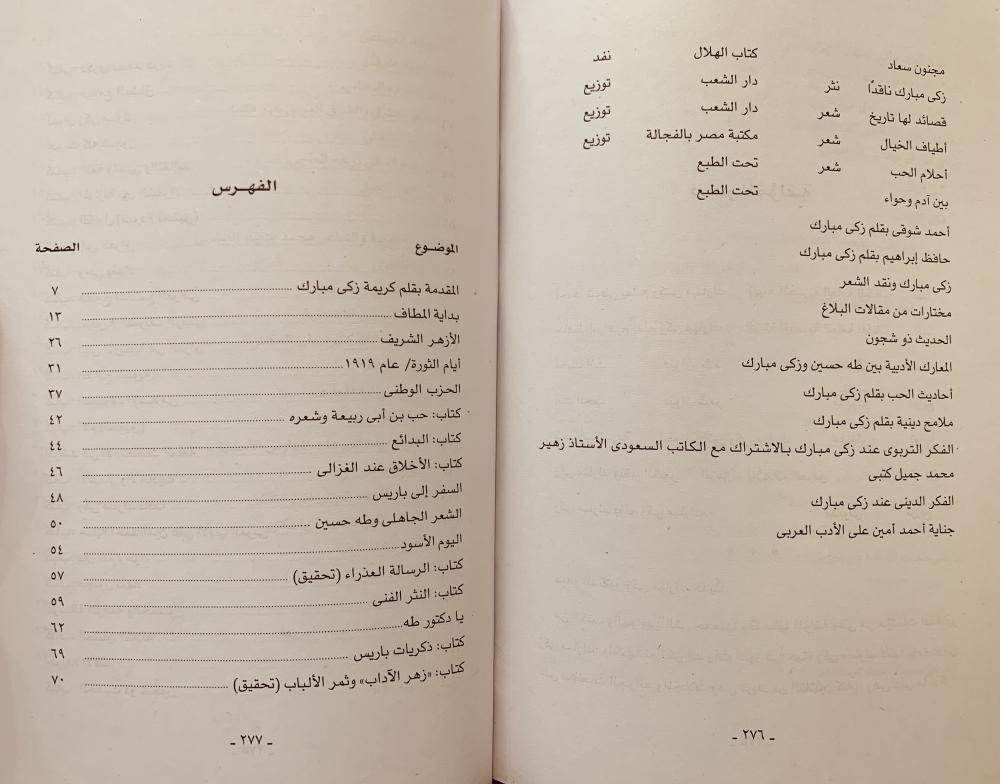 مجنون سعاد كتاب الهلال نفد
زكى مبارك ناقدًا نثر دار الشعب توزيع
قصائد لها تاريخ شعر دار الشعب توزيع
أطياف الخيال شعر مكتبة مصر بالفجالة توزيع
أحلام الحب شعر تحت الطبع
بين آدم وحواء تحت الطبع
أحمد شوقى بقلم زكى مبارك
حافظ إبراهيم بقلم زكى مبارك
زكى مبارك ونقد الشعر
مختارات من مقالات البلاغ
الحديث ذو شجون
المعارك الأدبية بين طه حسين وزكى مبارك
أحاديث الحب بقلم زكى مبارك
ملامح دينية بقلم زكى مبارك
الفكر التربوى عند زكى مبارك بالاشتراك مع الكاتب السعودى الأستاذ زهير
محمد جميل كتبى
الفكر الدينى عند زكى مبارك
جناية أحمد أمين على الأدب العربى
ـ ٢٧٦ ـ
الفهـرس
الموضـوع الصفحة
المقدمة بقلم كريمة زكى مبارك ٧
بداية المطاف ١٣
الأزهر الشريف ٢٦
أيام الثورة/ عام ١٩١٩ ٣١
الحزب الوطنى ٣٧
كتاب: حب بن أبى ربيعة وشعره ٤٢
كتاب: البدائع ٤٤
كتاب: الأخلاق عند الغزالى ٤٦
السفر إلى باريس ٤٨
الشعر الجاهلى وطه حسين ٥٠
اليوم الأسود ٥٤
كتاب: الرسالة العذراء (تحقيق) ٥٧
كتاب: النثر الفنى ٥٩
يا دكتور طه ٦٢
كتاب: ذكريات باريس ٦٩
كتاب: «زهر الآداب» وثمر الألباب (تحقيق) ٧٠
ـ ٢٧٧ ـ